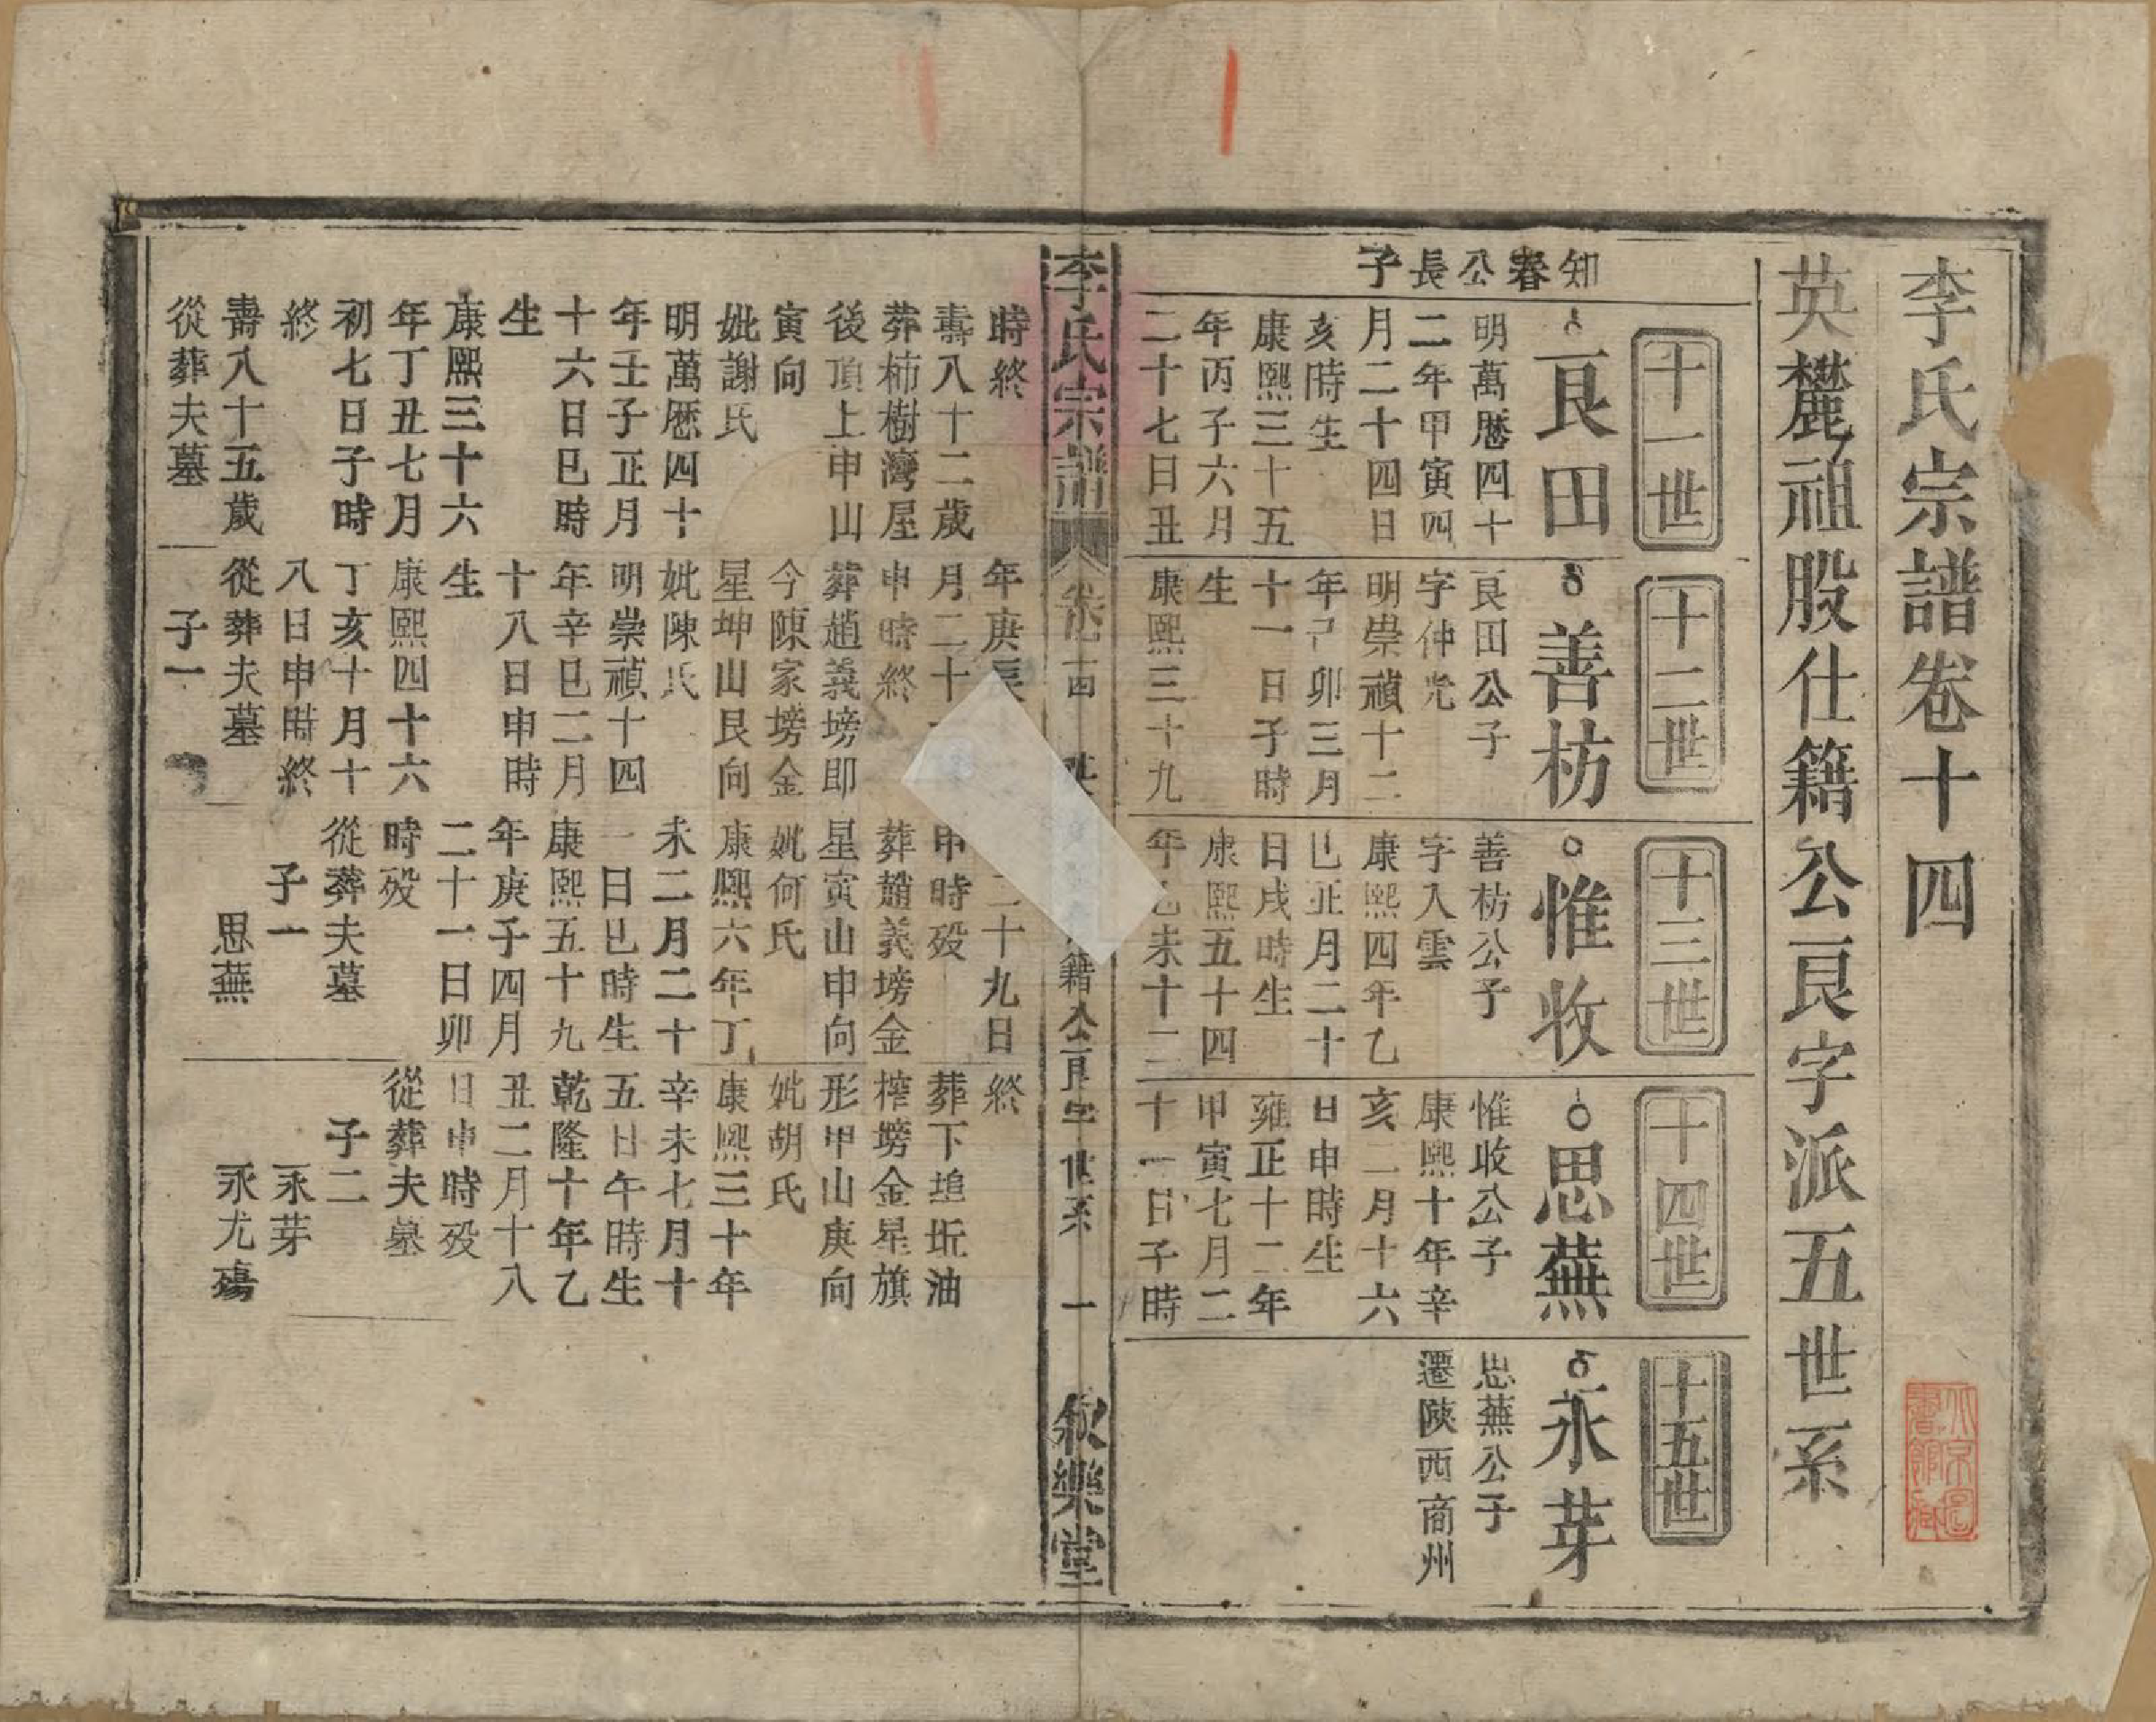 李氏宗譜卷十四
英麓祖股仕籍公良字派五世系
知春公長子
十一世
良田
明萬曆四十
二年甲寅四
月二十四日
亥時生
康熙三十五
年丙子六月
二十七日丑
十二世
善枋
良田公子
字仲光
明崇禎十二
年己卯三月
十一日子時
生
康熙三十九
十三世
惟收
善枋公子
字入雲
康熙四年乙
巳正月二十
日戌時生
康熙五十四
年乙未十二
十四世
思蕪
惟收公子
康熙十年辛
亥一月十六
日申時生
雍正十二年
甲寅七月二
十一日子時
十五世
永芽
思蕪公子
遷陝西商州
李氏宗譜 卷十四 籍公良字世系 一 欽樂堂
時終
壽八十二歲
葬柿樹灣屋
後頂上申山
寅向
妣謝氏
明萬曆四十
年壬子正月
十六日巳時
生
康熙三十六
年丁丑七月
初七日子時
終
壽八十五歲
從葬夫墓
年庚辰
月二十
申時終
葬趙義塝即
今陳家塝金
星坤山艮向
妣陳氏
明崇禎十四
年辛巳二月
十八日申時
生
康熙四十六
丁亥十月十
八日申時終
從葬夫墓
子一
二十九日
申時歿
葬趙義塝金
星寅山申向
妣何氏
康熙六年丁
未二月二十
一日巳時生
康熙五十九
年庚子四月
二十一日卯
時歿
從葬夫墓
子一
思蕪
終
葬下塆坵油
榨塝金星旗
形甲山庚向
妣胡氏
康熙三十年
辛未七月十
五日午時生
乾隆十年乙
丑二月十八
日申時歿
從葬夫墓
子二
永芽
永尤殤